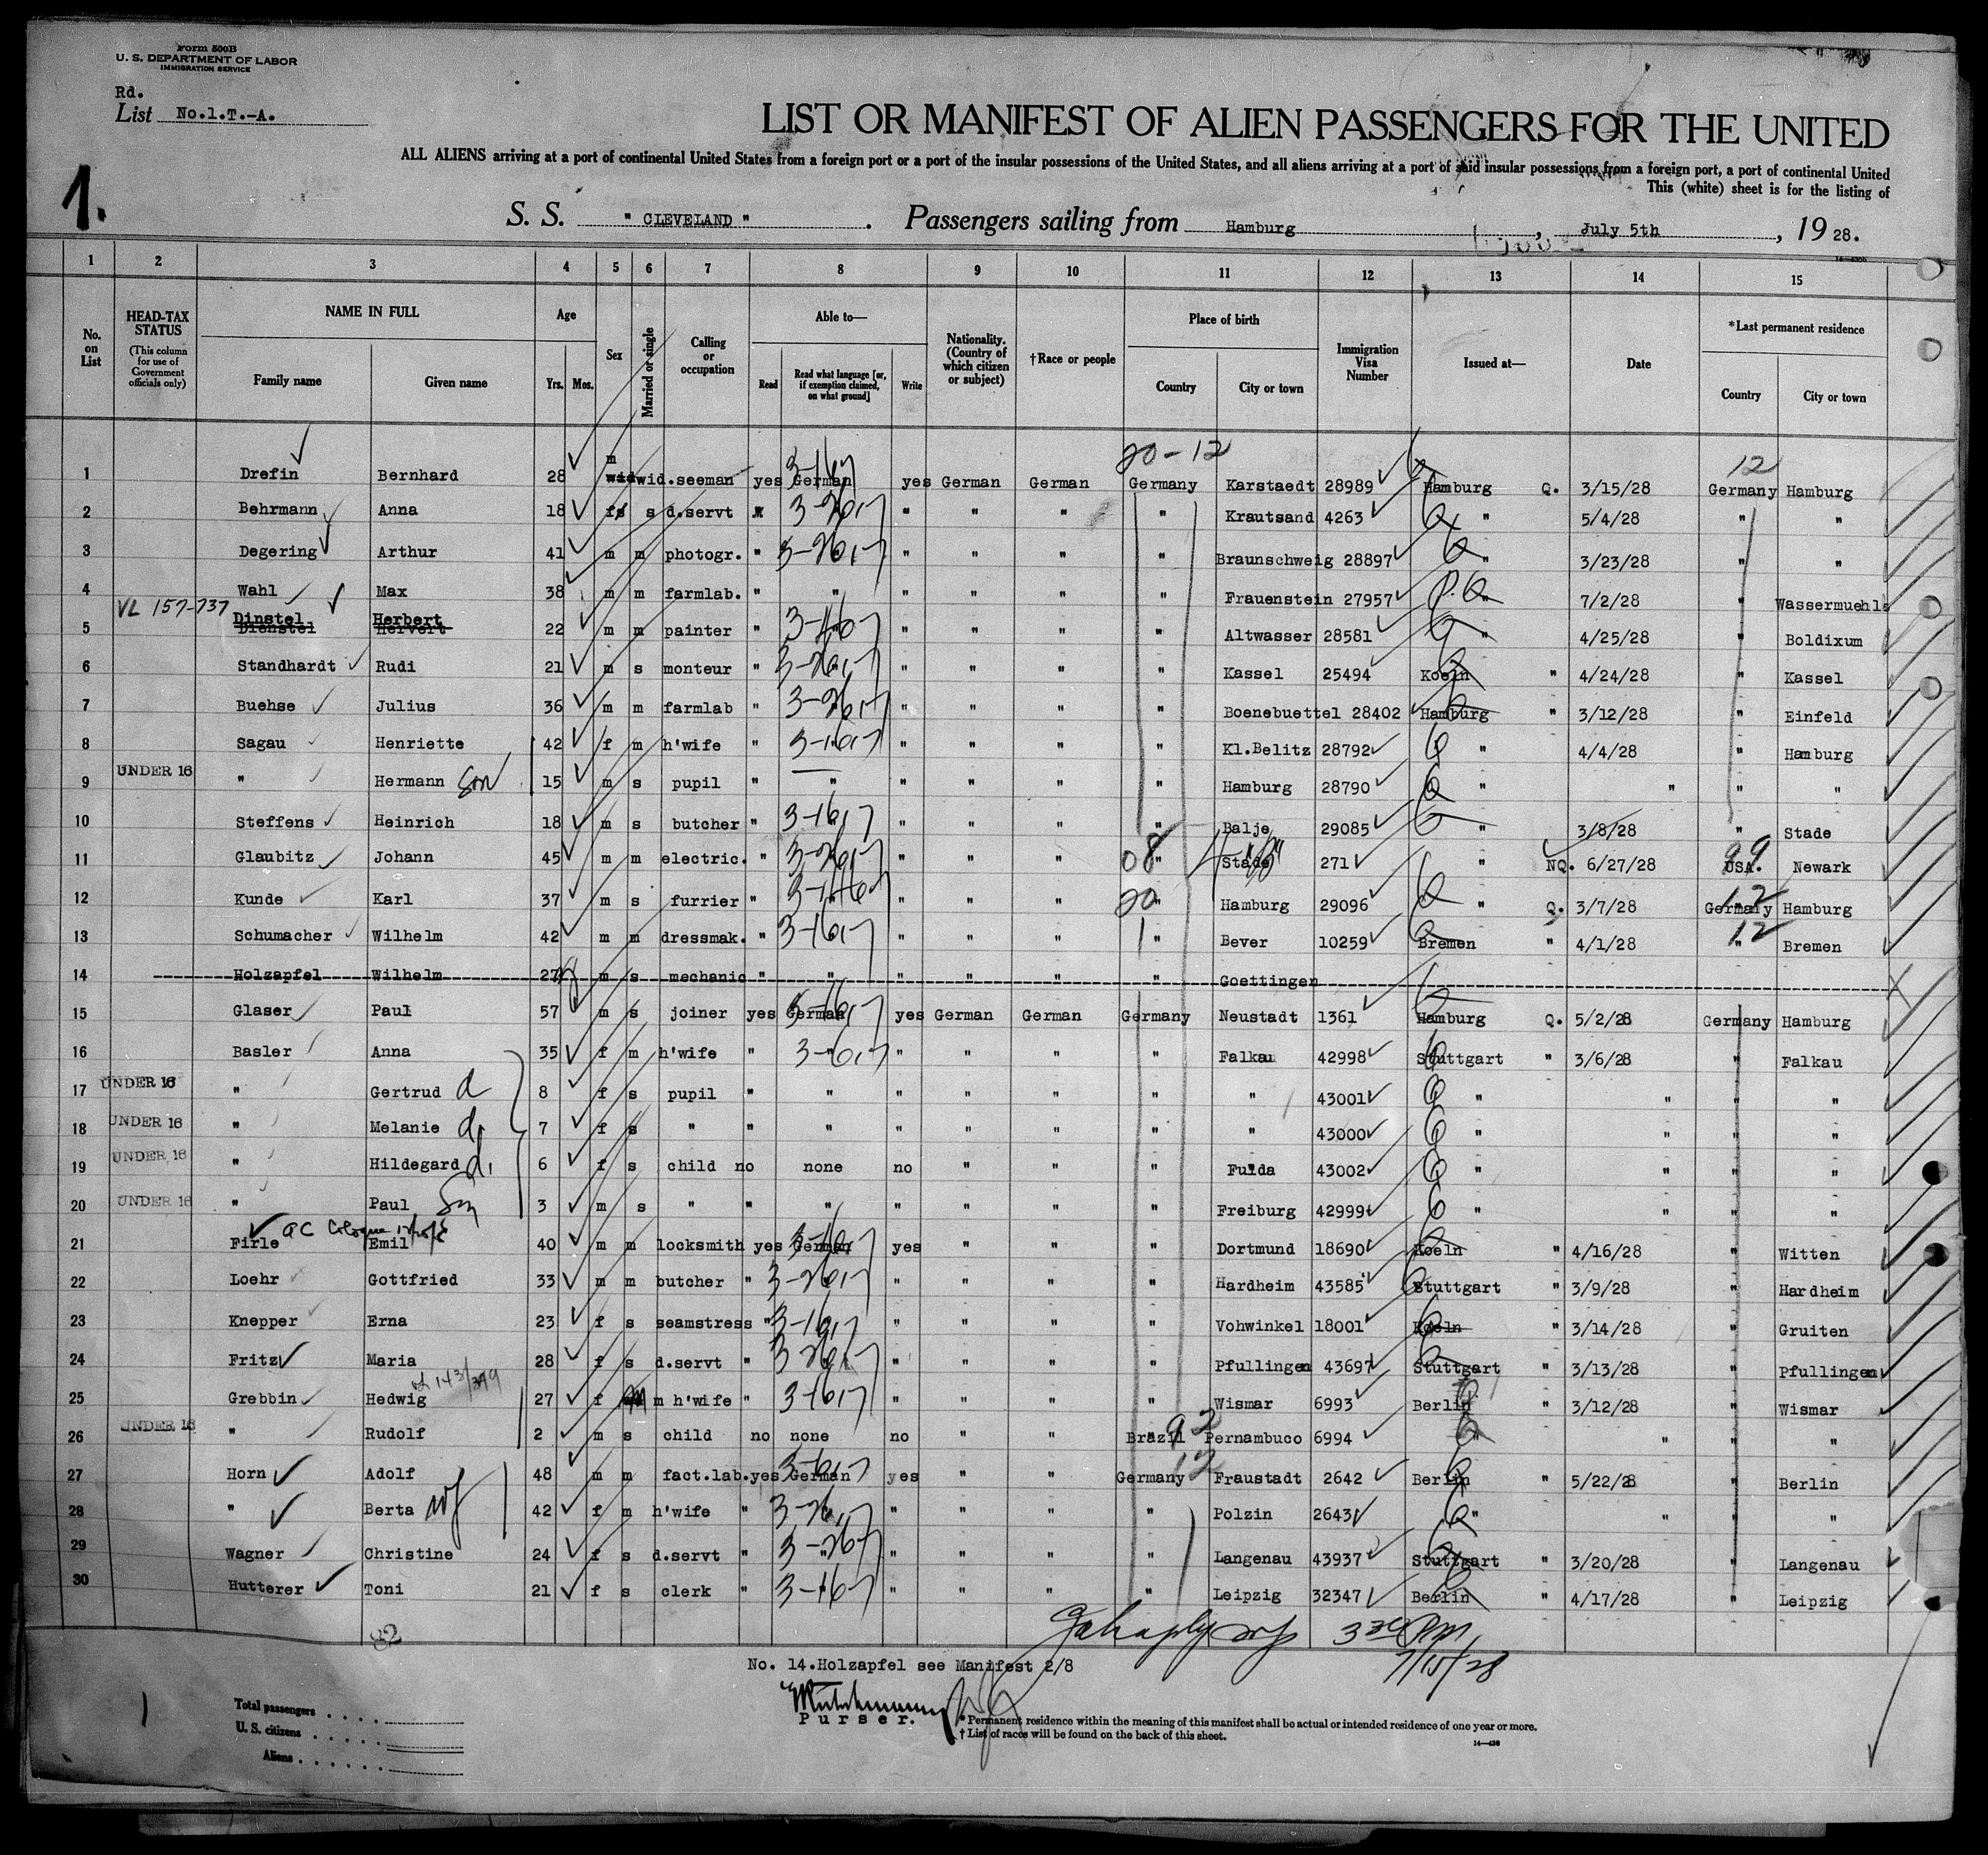 Form 500B
U. S. DEPARTMENT OF LABOR
IMMIGRATION SERVICE
Rd.
List No.1.T.-A.
LIST OR MANIFEST OF ALIEN PASSENGERS FOR THE UNITED
ALL ALIENS arriving at a port of continental United States from a foreign port or a port of the insular possessions of the United States, and all aliens arriving at a port of said insular possessions from a foreign port, a port of continental United
This (white) sheet is for the listing of
1.
S. S. " CLEVELAND " . Passengers sailing from Hamburg , July 5th , 19 28.
1 2 3 4 5 6 7 8 9 10 11 12 13 14 15
No. on List
HEAD-TAX STATUS
(This column for use of Government officials only)
NAME IN FULL
Family name Given name
Age
Yrs. Mos.
Sex
Married or single
Calling or occupation
Able to—
Read Read what language [or, if exemption claimed, on what ground] Write
Nationality. (Country of which citizen or subject)
†Race or people
Place of birth
Country City or town
Immigration Visa Number
Issued at—
Date
*Last permanent residence
Country City or town
20-12 12
1 Drefin Bernhard 28 m wid wid. seeman yes German yes German German Germany Karstaedt 28989 Hamburg Q. 3/15/28 Germany Hamburg
2 Behrmann Anna 18 f s d.servt " " " " " Krautsand 4263 " 5/4/28 " "
3 Degering Arthur 41 m m photogr. " " " " " Braunschweig 28897 " 3/23/28 " "
4 Wahl Max 38 m m farmlab. " " " " " " Frauenstein 27957 " 7/2/28 " Wassermuehls
VL 157-737 Dinstel Herbert
5 Dienstel Hervert 22 m m painter " " " " " " Altwasser 28581 " 4/25/28 " Boldixum
6 Standhardt Rudi 21 m s monteur " " " " " Kassel 25494 Koeln " 4/24/28 " Kassel
7 Buehse Julius 36 m m farmlab " " " " " Boenebuettel 28402 Hamburg " 3/12/28 " Einfeld
8 Sagau Henriette 42 f m h'wife " " " " " Kl.Belitz 28792 " 4/4/28 " Hamburg
9 UNDER 16 " Hermann son 15 m s pupil " " " " " " Hamburg 28790 " " " "
10 Steffens Heinrich 18 m s butcher " " " " " Balje 29085 " 3/8/28 " Stade
11 Glaubitz Johann 45 m m electric. " " " " 08 " Stade 271 " NQ. 6/27/28 99 USA. Newark
12 Kunde Karl 37 m s furrier " " " " 20 " Hamburg 29096 " Q. 3/7/28 12 Germany Hamburg
13 Schumacher Wilhelm 42 m m dressmak. " " " " " Bever 10259 Bremen " 4/1/28 12 " Bremen
14 Holzapfel Wilhelm 27 m s mechanic " " " " " " Goettingen
15 Glaser Paul 57 m s joiner yes German yes German German Germany Neustadt 1361 Hamburg Q. 5/2/28 Germany Hamburg
16 Basler Anna 35 f m h'wife " " " " " " Falkau 42998 Stuttgart " 3/6/28 " Falkau
17 UNDER 16 " Gertrud d 8 f s pupil " " " " " " " 43001 " " " "
18 UNDER 16 " Melanie d. 7 f s " " " " " " " " 43000 " " " "
19 UNDER 16 " Hildegard d. 6 f s child no none no " " " Fulda 43002 " " " "
20 UNDER 16 " Paul Son 3 m s " " " " " " " Freiburg 42999 " " " "
21 Firle Emil 40 m m locksmith yes German yes " " " Dortmund 18690 Koeln " 4/16/28 " Witten
22 Loehr Gottfried 33 m m butcher " " " " " Hardheim 43585 Stuttgart " 3/9/28 " Hardheim
23 Knepper Erna 23 f s seamstress " " " " " Vohwinkel 18001 Koeln " 3/14/28 " Gruiten
24 Fritz Maria 28 f s d.servt " " " " " Pfullingen 43697 Stuttgart " 3/13/28 " Pfullingen
25 Grebbin Hedwig 27 f m h'wife " " " " " Wismar 6993 Berlin " 3/12/28 " Wismar
26 UNDER 16 " Rudolf 2 m s child no none no " " Brazil Pernambuco 6994 " " " "
27 Horn Adolf 48 m m fact.lab. yes German yes " " Germany 12 Fraustadt 2642 Berlin " 5/22/28 " Berlin
28 " Berta wf 42 f m h'wife " " " " " Polzin 2643 " " " "
29 Wagner Christine 24 f s d.servt " " " " " " Langenau 43937 Stuttgart " 3/20/28 " Langenau
30 Hutterer Toni 21 f s clerk " " " " " Leipzig 32347 Berlin " 4/17/28 " Leipzig
82
7/15/28
No. 14.Holzapfel see Manifest 2/8
Purser.
Total passengers
U. S. citizens
Aliens
* Permanent residence within the meaning of this manifest shall be actual or intended residence of one year or more.
† List of races will be found on the back of this sheet.
14—430